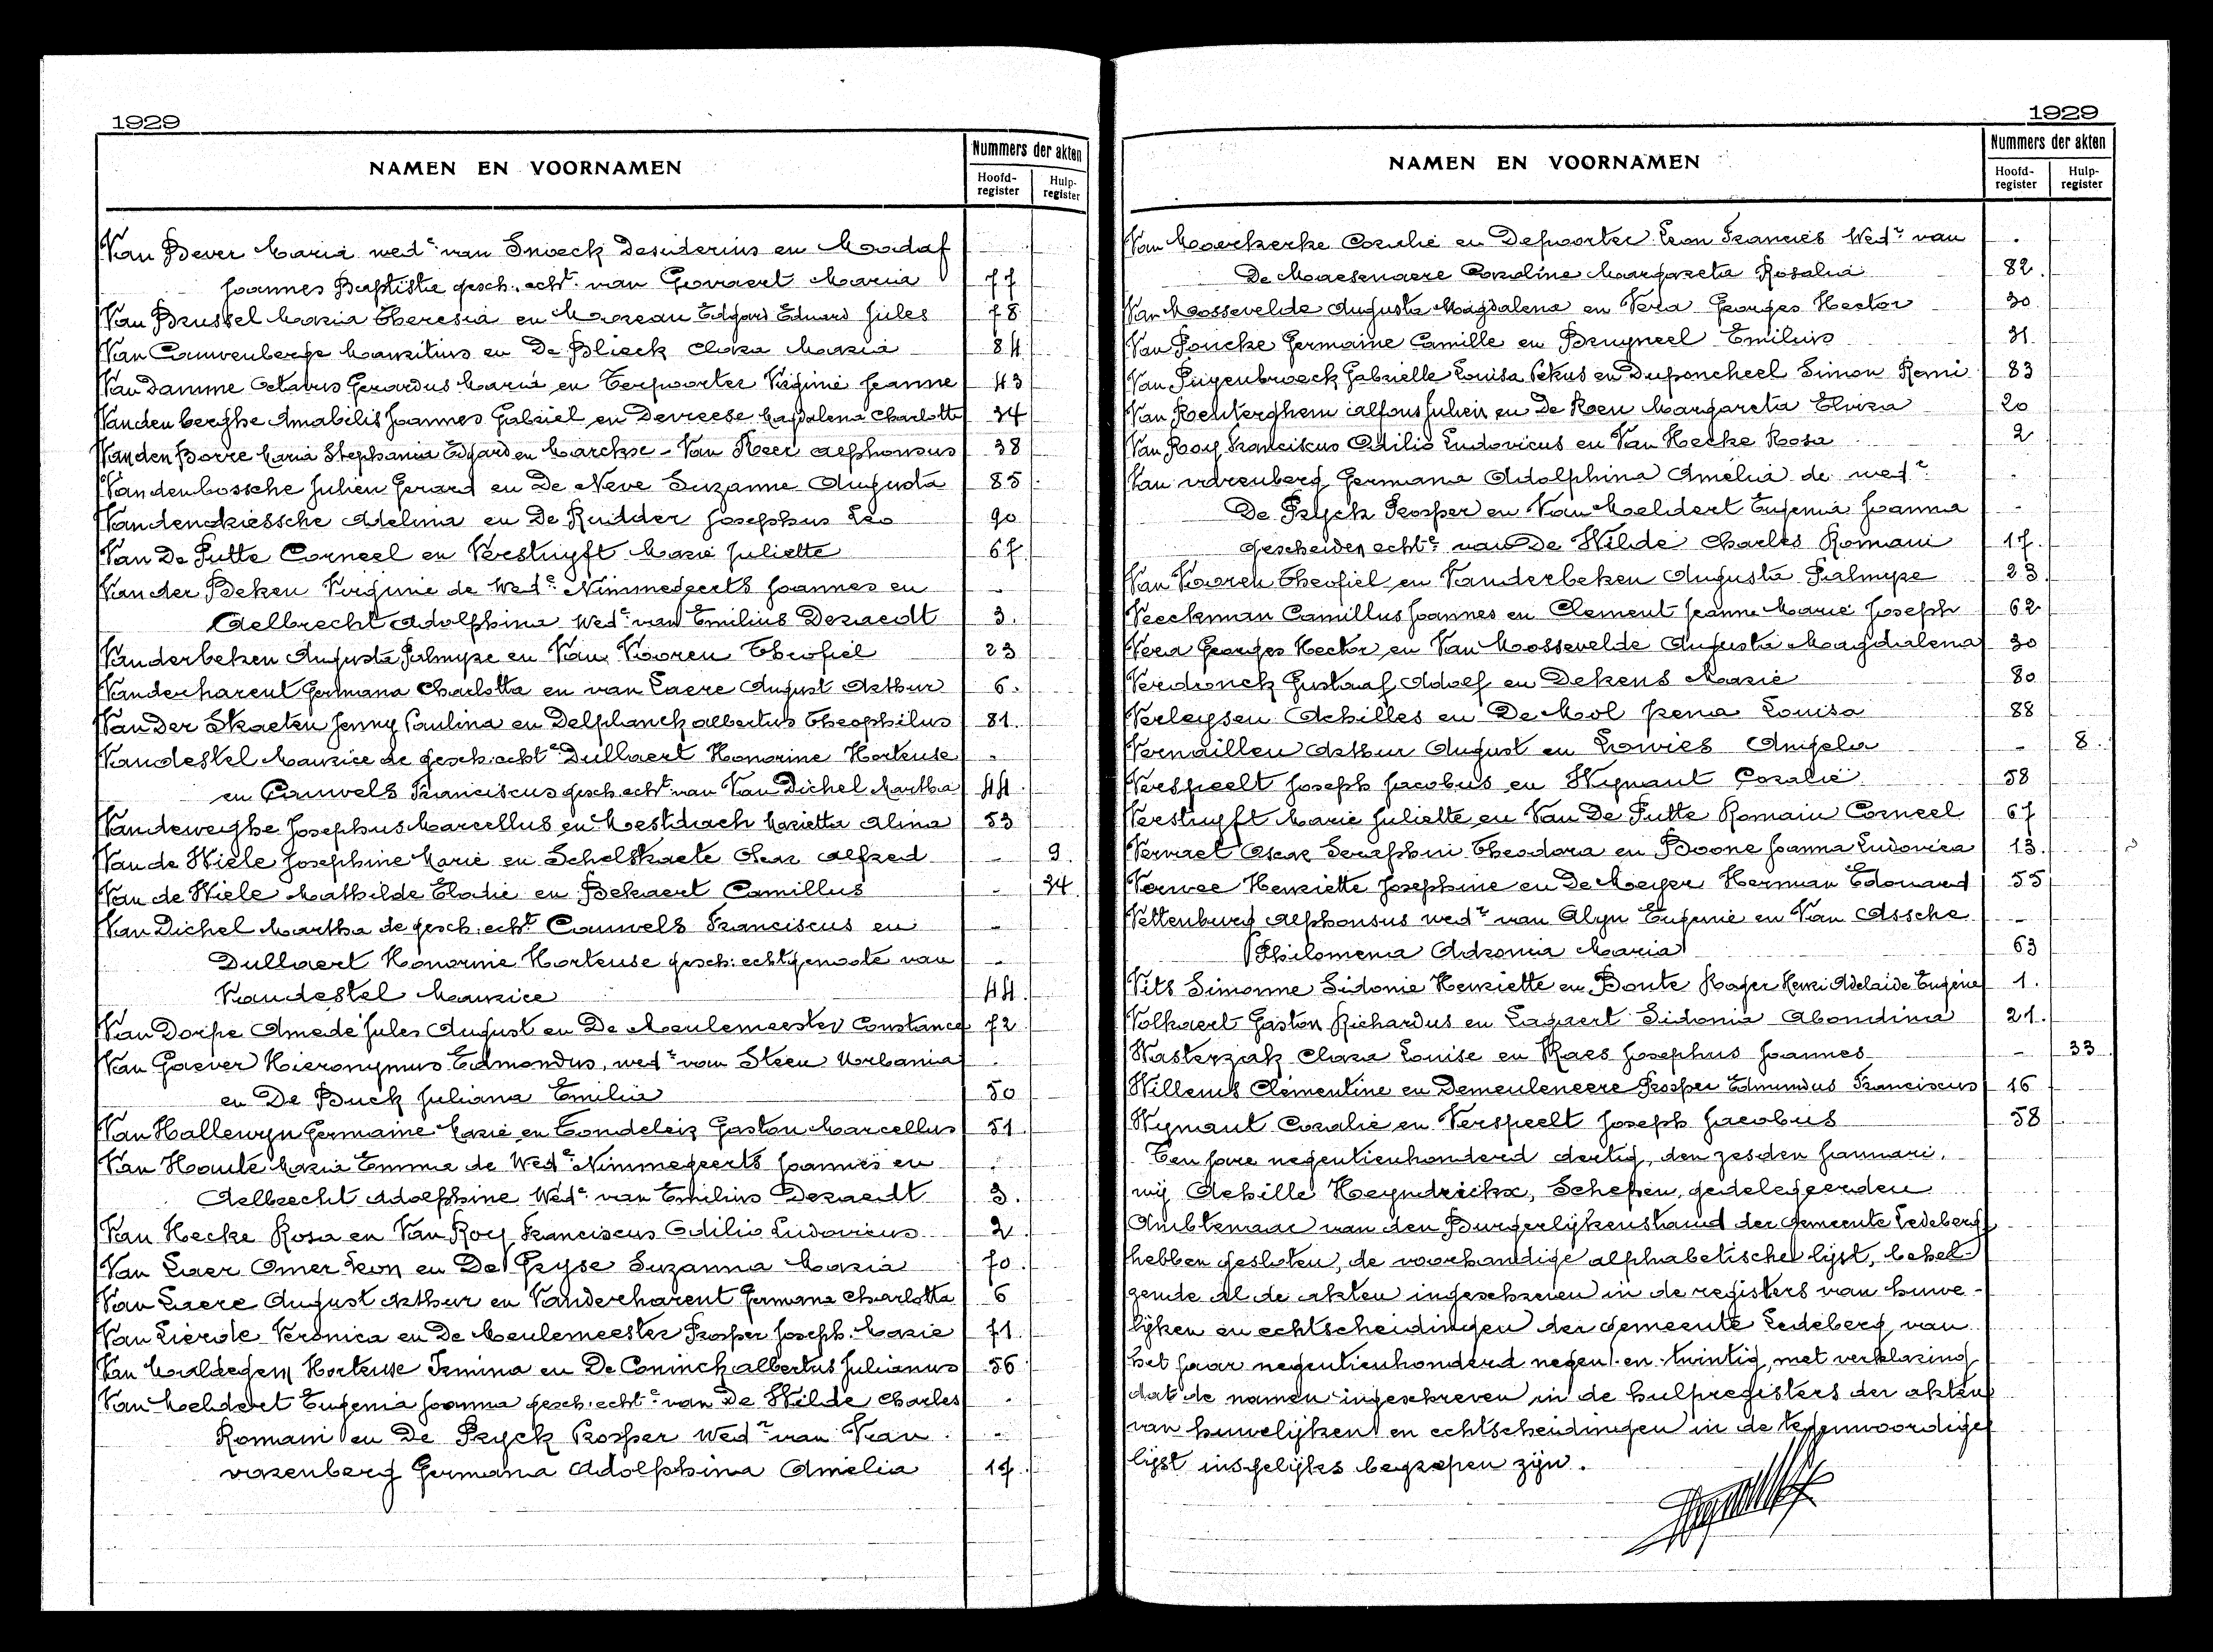 1929
NAMEN EN VOORNAMEN
Nummers der akten
Hoofd-register
Hulp-register
Van Bever Maria wede van Snoeck Desiderius en
Joannes Baptiste gesch. echt. van Govaert Maria 77
Van Brussel Maria Theresia en Moreau Edgard Eduard Jules 78
Van Cauwenberge Mauritius en De Blieck Clara Maria 84
Van Damme Octavus Gerardus Maria en Terpoorter Virginie Jeanne 43
Vanden berghe Amabilis Joannes Gabriel en Devreese Magdalena Charlotte 34
Vanden Borre Maria Stephania Edgard en Marckx - Van Heer Alphonsus 38
Vandenbossche Julien Gerard en De Neve Suzanne Augusta 85
Vandendriessche Adelina en De Ridder Josephus Leo 90
Van De Putte Corneel en Verstuyft Marie Juliette 67
Van der Beken Virginie de Wede Nimmegeerts Joannes en -
Aelbrecht Adolphina Wede van Emilius Deraedt 3.
Vanderbeken Augusta Palmyre en Van Vooren Theofiel 23
Vanderharent Germana Charlotta en van Laere August Arthur 6.
Van Der Straeten Jenny Paulina en Delplanck Albertus Theophilus 81.
Vandestel Maurice de gesch. echte Dullaert Honorine Hortense -
en Cauwels Franciscus gesch. echt van Van Dichel Martha 44
Vandeweghe Josephus Marcellus en Mestdach Marietta Alina 53
Van de Wiele Josephine Marie en Schelstraete Oscar Alfred - 9.
Van de Wiele Mathilde Elodie en Bekaert Camillus - 34.
Van Dichel Martha de gesch. echt. Cauwels Franciscus en -
Dullaert Honorine Hortense gesch. echtgenoote van -
Vandestel Maurice 44.
Van Dorpe Amedé Jules August en De Meulemeester Constance 72
Van Gaever Hieronymus Edmondus, wedr van Steen Urbania
en De Buck Juliana Emilia 50
Van Hallewyn Germaine Marie en Tondeleir Gaston Marcellus 51.
Van Houte Maria Emma de Wede Nimmegeerts Joannes en
Aelbrecht Adolphine Wede van Emilius Deraedt 3.
Van Hecke Rosa en Van Roy Franciscus Odilio Ludovicus 2
Van Laer Omer Leon en De Pryse Suzanna Maria 70.
Van Laere August Arthur en Vanderharent Germana Charlotta 6
Van Lierde Veronica en De Meulemeester Prosper Joseph Marie 71
Van Maldegem Hortense Irmina en De Coninck Albertus Julianus 56
Van Meldert Eugenia Joanna gesch. echte van De Wilde Charles
Romain en De Pryck Prosper Wedr van Van -
varenberg Germana Adolphina Amelia 17.
1929
NAMEN EN VOORNAMEN
Nummers der akten
Hoofd-register
Hulp-register
Van Moerkerke Coralie en Depoorter Leon Francies Wedr van
De Maesenaere Caroline Margareta Rosalia 82.
Van Mossevelde Augusta Magdalena en Vera Georges Hector 30
Van Poucke Germaine Camille en Bruyneel Emilius 31
Van Puyenbroeck Gabrielle Louisa en Duponcheel Simon Remi 83
Van Rechterghem Alfons Julien en De Roeu Margareta Elvira 20
Van Roy Franciscus Odilio Ludovicus en Van Hecke Rosa 2
Van varenberg Germana Adolphina Amelia de wedr -
De Pryck Prosper en Van Meldert Eugenia Joanna -
gescheiden echte van De Wilde Charles Romain 17.
Van Vooren Theofiel en Vanderbeken Augusta Palmyre 23.
Veeckman Camillus Joannes en Clement Jeanne Marie Joseph 62
Vera Georges Hector en Van Mossevelde Augusta Magdalena 30
Verdonck Gustaaf Adolf en Dekens Marie 80
Verleysen Achilles en De Mol Irena Louisa 88
Vernaillen Arthur August en Lowies Angela - 8.
Verspeelt Joseph Jacobus en Wynant Coralie 58
Verstuyft Marie Juliette en Van De Putte Romain Corneel 67
Vervaet Oscar Seraphin Theodora en Boone Joanna Ludovica 13.
Vervee Henriette Josephine en De Meyer Herman Edouard 55
Vettenburg Alphonsus wedr van Alyn Eugenie en Van Assche -
Philomena Adronia Maria 63
Vits Simonne Sidonie Henriette en Bonte Roger Henri Adelaide Eugène 1.
Volkaert Gaston Richardus en Lagaert Sidonia Abondina 21.
Wasterzak Clara Louise en Raes Josephus Joannes - 33
Willems Clementine en Demeuleneere Prosper Edmundus Franciscus 16
Wynant Coralie en Verspeelt Joseph Jacobus 58
Ten jare negentienhonderd dertig, den zesden Januari,
wij Achille Heyndrickx, Schepen, gedelegeerden
Ambtenaar van den Burgerlijkenstand der Gemeente Ledeberg
hebben gesloten, de voorhandige alphabetische lijst, behel-
zende al de akten ingeschreven in de registers van huwe-
lijken en echtscheidingen der Gemeente Ledeberg van
het jaar negentienhonderd negen-en-twintig, met verklaring
dat de namen ingeschreven in de hulpregisters der akten
van huwelijken en echtscheidingen in de tegenwoordige
lijst insgelijks begrepen zijn.